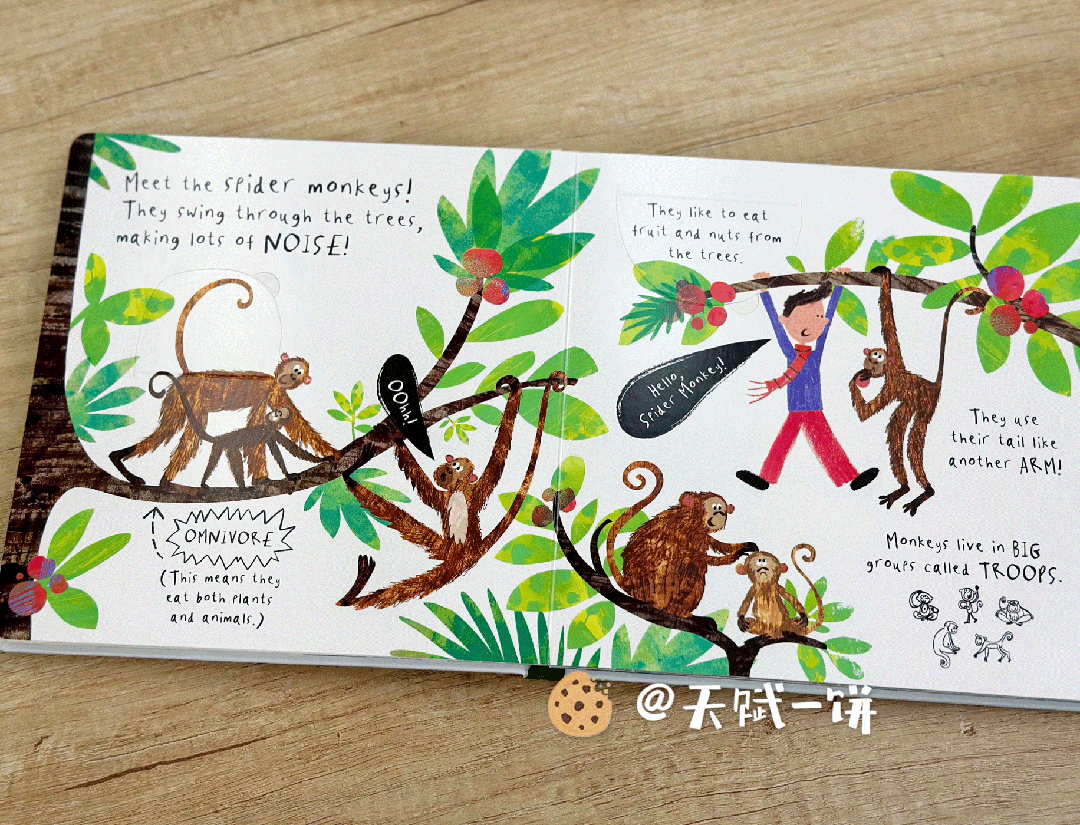 Meet the spider monkeys!
They swing through the trees,
making lots of NOISE!
OOhh!
OMNIVORE
(This means they
eat both plants
and animals.)
They like to eat
fruit and nuts from
the trees.
Hello,
Spider Monkey!
They use
their tail like
another ARM!
Monkeys live in BIG
groups called TROOPS.
@天赋一饼